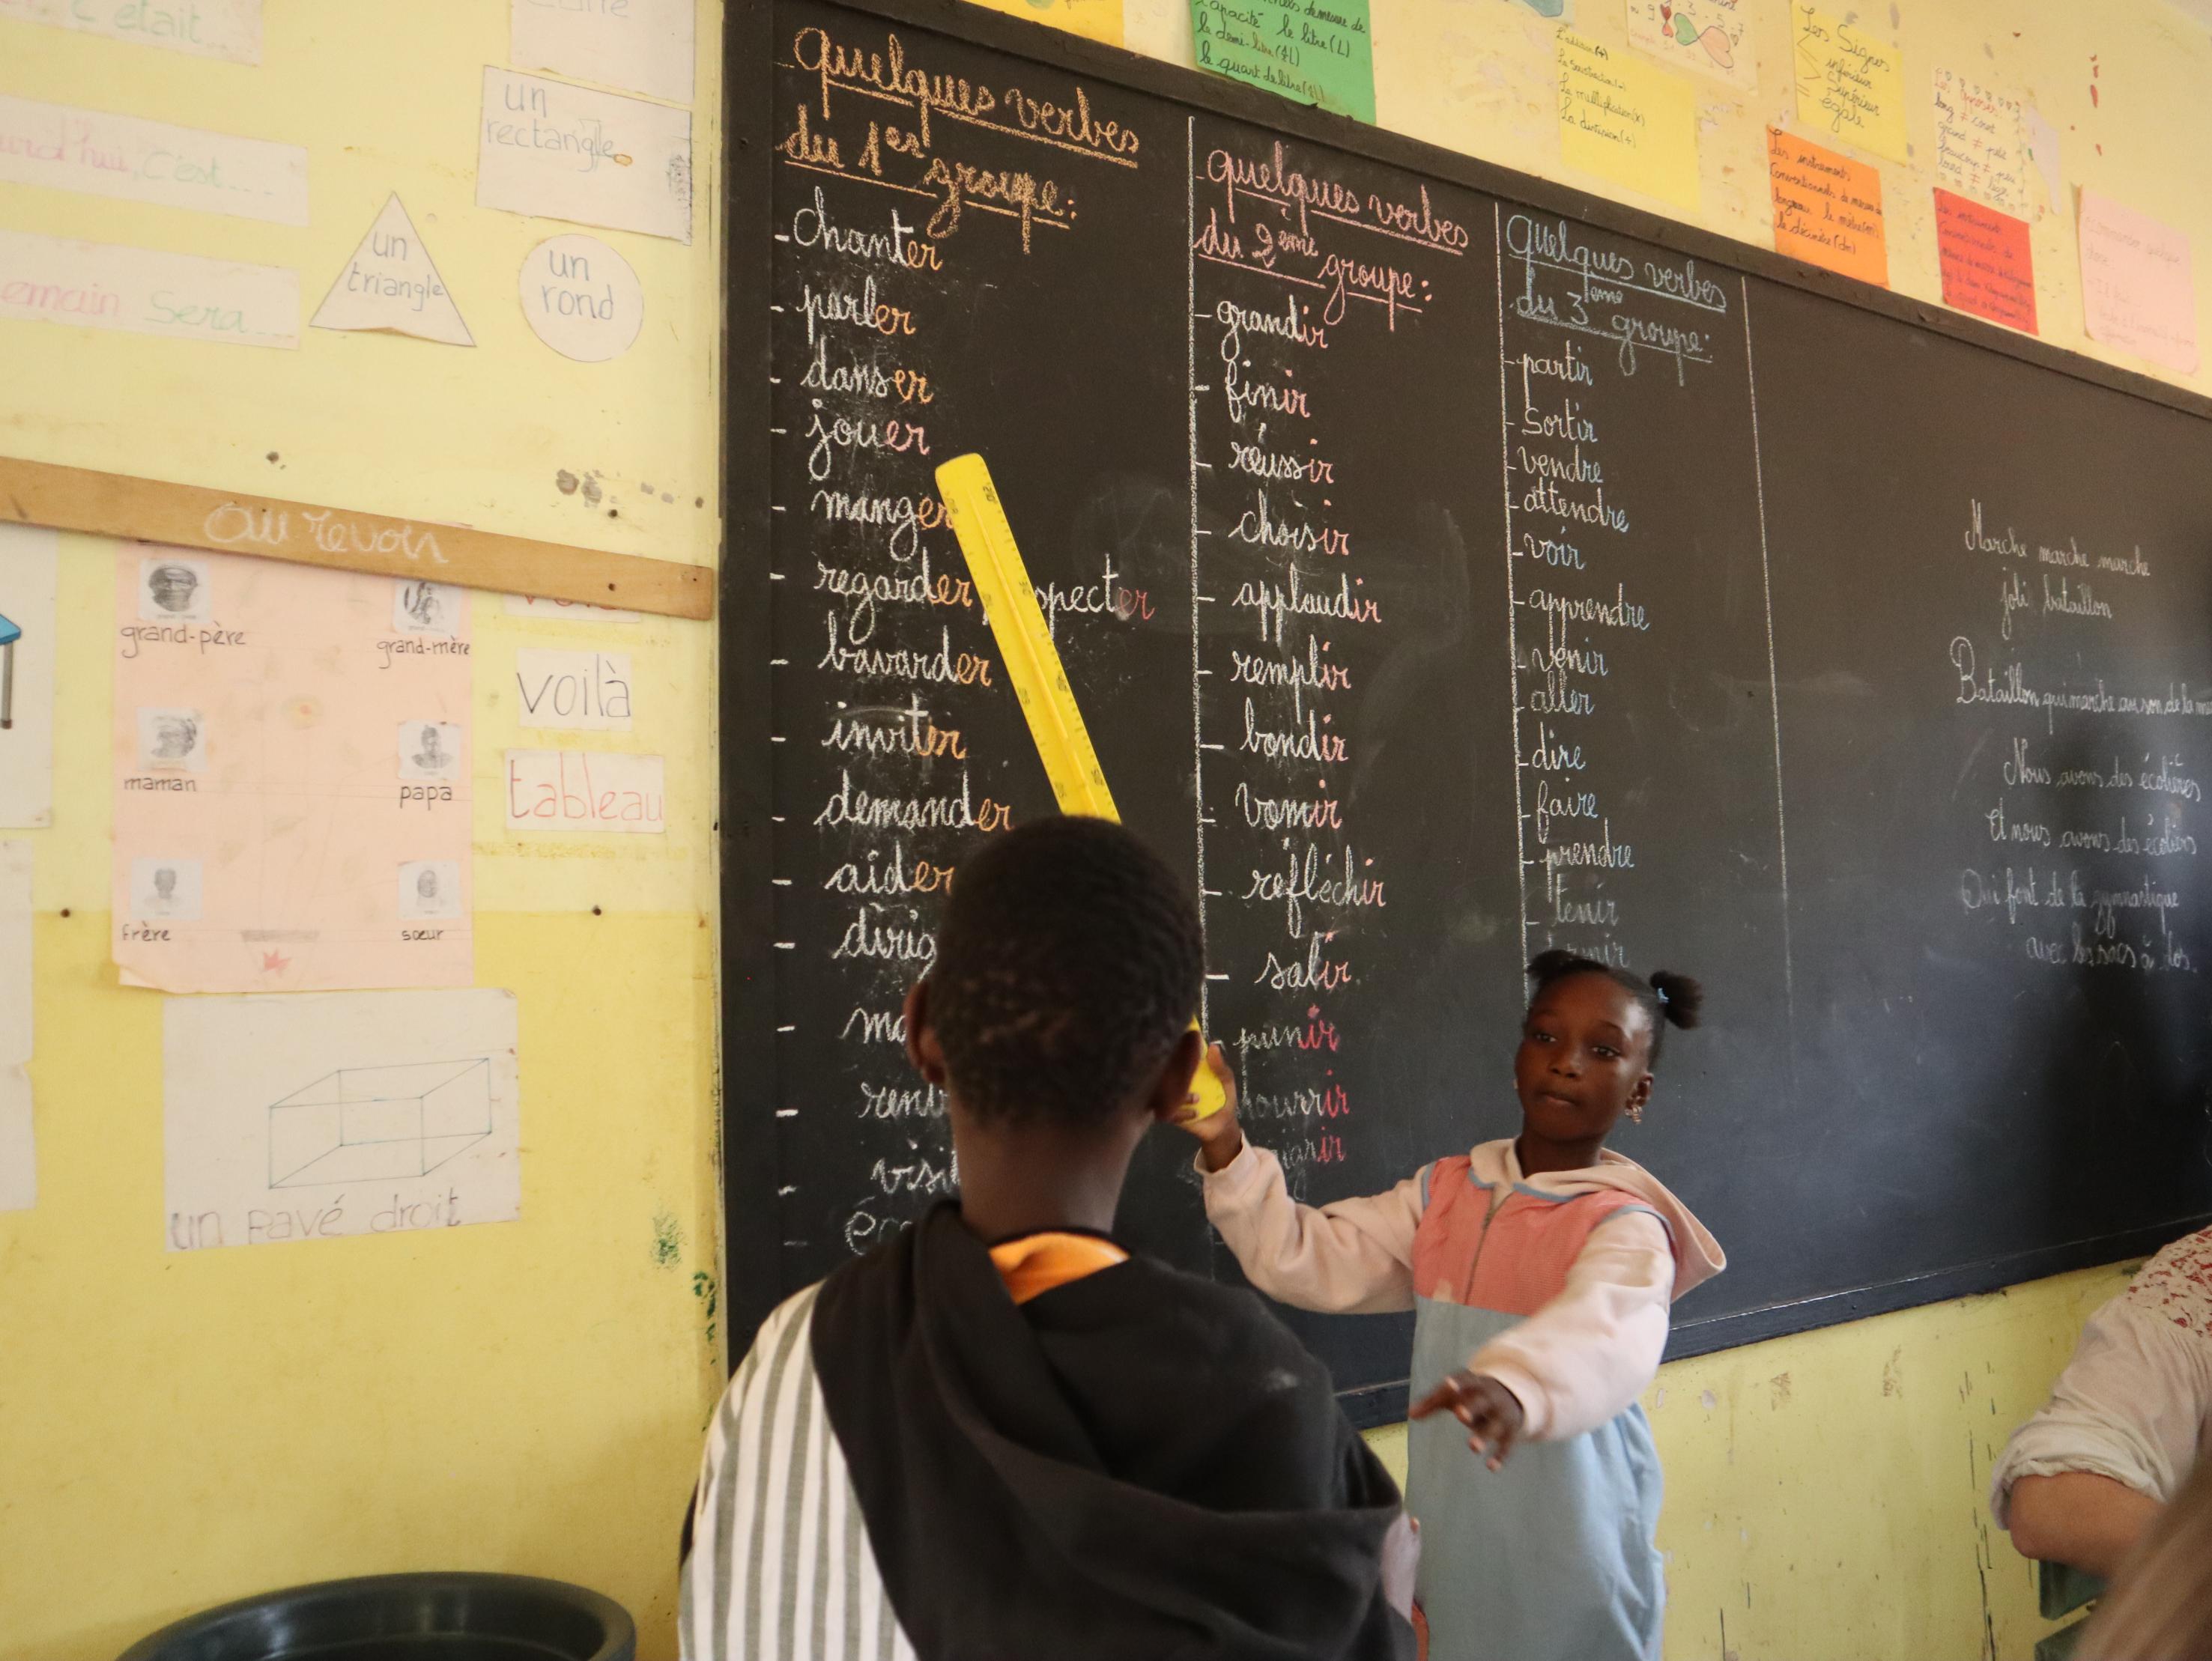 c'était...
un
rectangle
urd'hui, C'est...
emain Sera...
un
triangle
un
rond
au revoir
grand-père
grand-mère
maman
papa
frère
sœur
voilà
tableau
un pavé droit
Quelques verbes
du 1er groupe:
- chanter
- parler
- danser
- jouer
- manger
- regarder specter
- bavarder
- inviter
- demander
- aider
- dirig
- ma
-
- visi
-
quelques verbes
du 2ème groupe:
- grandir
- finir
- réussir
- choisir
- applaudir
- remplir
- bondir
- vomir
- réfléchir
- salir
- punir
ourrir
ir
Quelques verbes
du 3ème groupe:
- partir
- sortir
- vendre
- attendre
- voir
- apprendre
- venir
- aller
- dire
- faire
- prendre
- tenir
Marche marche marche
joli bataillon
Bataillon qui marche au son de la
Nous avons des écolières
Et nous avons des écoliers
Qui font de la gymnastique
avec les sacs à dos.
capacité le litre (L)
le demi-litre
le quart de litre
La soustraction (-)
La multiplication (x)
La division (÷)
Les Signes
inférieur
supérieur
égale
Les instruments
Conventionnels de mesure de
longueur le mètre (m)
le décimètre (dm)